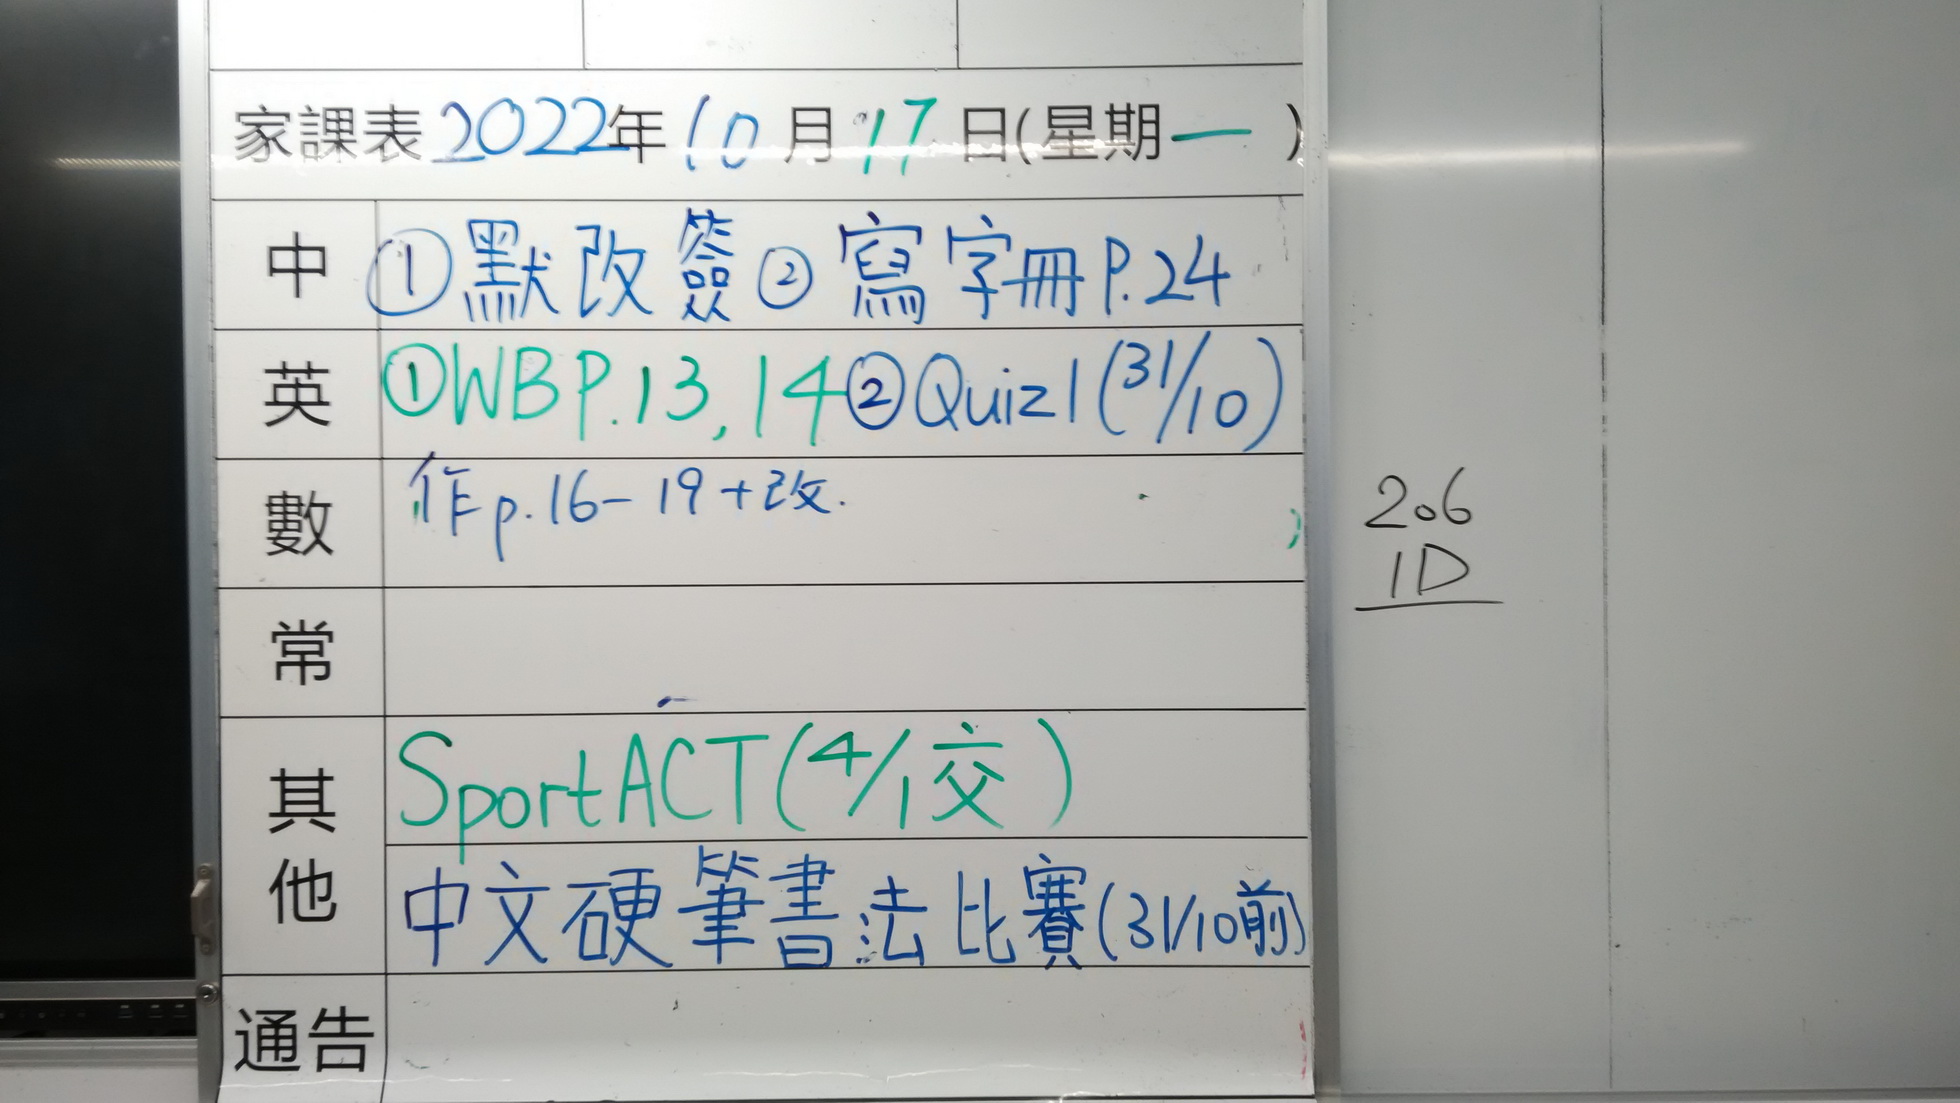 家課表2022年10月17日(星期一)
中 ①默改簽②寫字冊P.24
英 ①WBP.13,14②Quiz1(31/10)
數 作p.16-19+改.
常
其他 SportACT(4/1交)
中文硬筆書法比賽(31/10前)
通告
206
1D